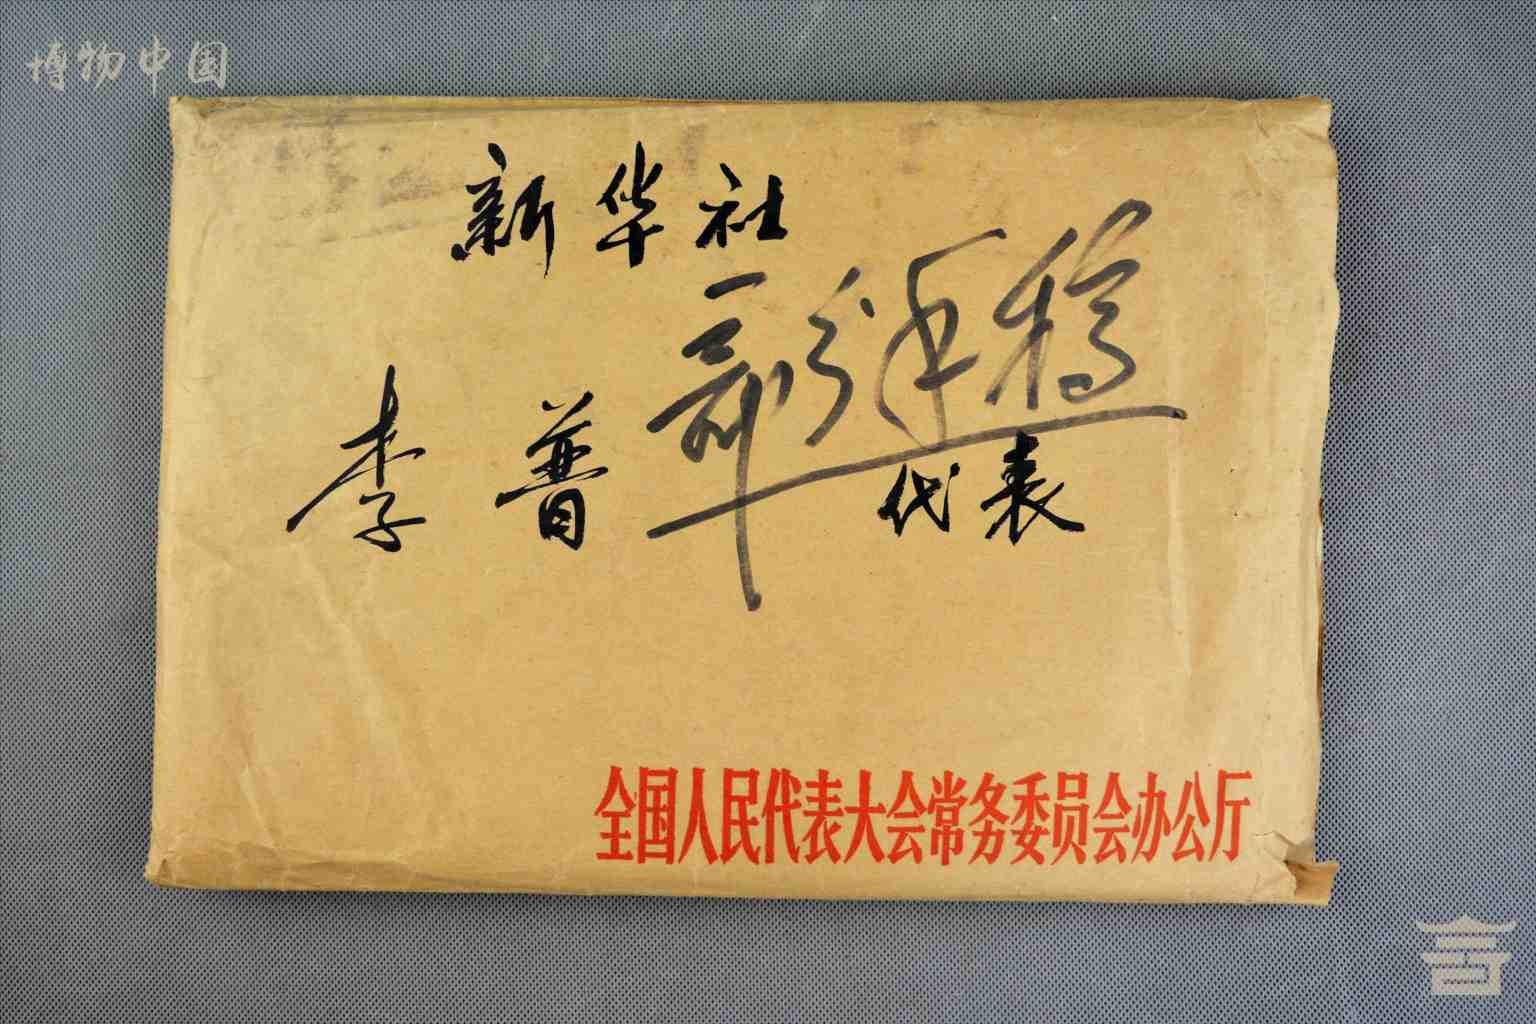 博物中国
新华社
李普 代表
全国人民代表大会常务委员会办公厅